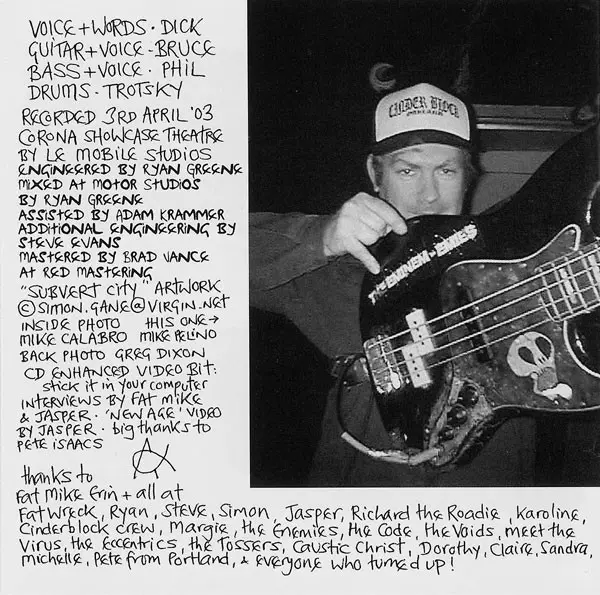 VOICE + WORDS · DICK
GUITAR + VOICE - BRUCE
BASS + VOICE · PHIL
DRUMS · TROTSKY
RECORDED 3RD APRIL '03
CORONA SHOWCASE THEATRE
BY LE MOBILE STUDIOS
ENGINEERED BY RYAN GREENE
MIXED AT MOTOR STUDIOS
BY RYAN GREENE
ASSISTED BY ADAM KRAMMER
ADDITIONAL ENGINEERING BY
STEVE EVANS
MASTERED BY BRAD VANCE
AT RED MASTERING
"SUBVERT CITY" ARTWORK
© SIMON.GANE@VIRGIN.NET
INSIDE PHOTO THIS ONE →
MIKE CALABRO MIKE PELINO
BACK PHOTO GREG DIXON
CD ENHANCED VIDEO BIT:
stick it in your computer
INTERVIEWS BY FAT MIKE
& JASPER · 'NEW AGE' VIDEO
BY JASPER · big thanks to
PETE ISAACS
thanks to
Fat Mike Erin + all at
Fat Wreck, Ryan, Steve, Simon, Jasper, Richard the Roadie, Karoline,
Cinderblock crew, Margie, the Enemies, the Code, the Voids, meet the
Virus, the Eccentrics, the Tossers, Caustic Christ, Dorothy, Claire, Sandra,
Michelle, Pete from Portland, & everyone who turned up!
CINDER BLOCK
OAKLAND
ENEMIES